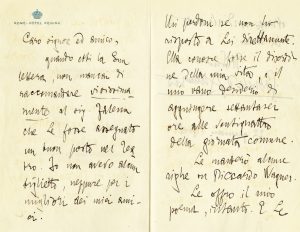 ROME-HOTEL REGINA
Caro signor ed amico,
quando ebbi la Sua
lettera, non mancai di
raccomandare vivissima
mente al sig.
che Le fosse assegnato
un buon posto nel Tea
tro. Io non avevo alcun
biglietto, neppure per i
migliori dei miei ami-
ci.
Mi perdoni se non ho
risposto a Lei direttamente.
Ella conosce forse il disordi
ne della mia vita, e il
mio vano desiderio di
aggiungere settantasei
ore alle ventiquattro
della giornata comune.
Le manderò alcune
righe su Riccardo Wagner.
Le offro il mio
poema, intanto. E Le